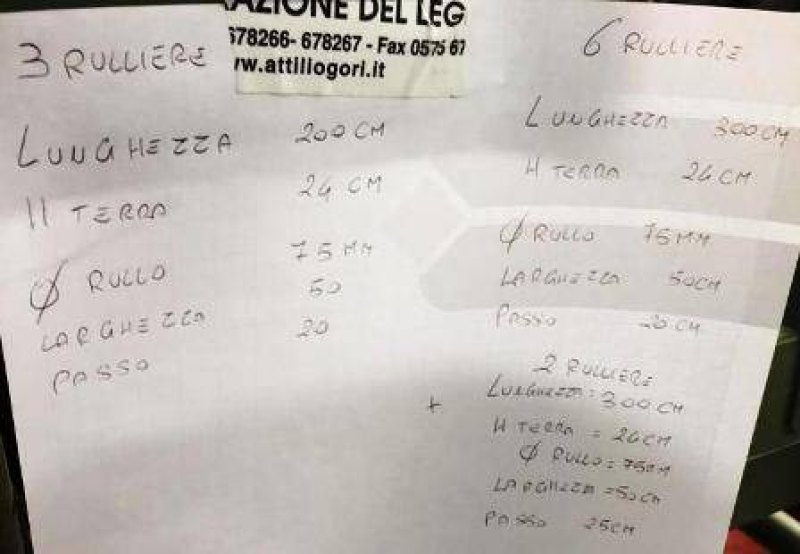 RAZIONE DEL LEG
678266- 678267 - Fax 0575 67
ww.attiliogori.it
3 RULLIERE
LUNGHEZZA 200 CM
H TERRA 24 CM
Ø RULLO 75 MM
LARGHEZZA 50
PASSO 20
6 RULLIERE
LUNGHEZZA 300 CM
H TERRA 24 CM
Ø RULLO 75 MM
LARGHEZZA 50 CM
PASSO 20 CM
+ 2 RULLIERE
LUNGHEZZA = 300 CM
H TERRA = 24 CM
Ø RULLO = 75 MM
LARGHEZZA = 50 CM
PASSO 25 CM